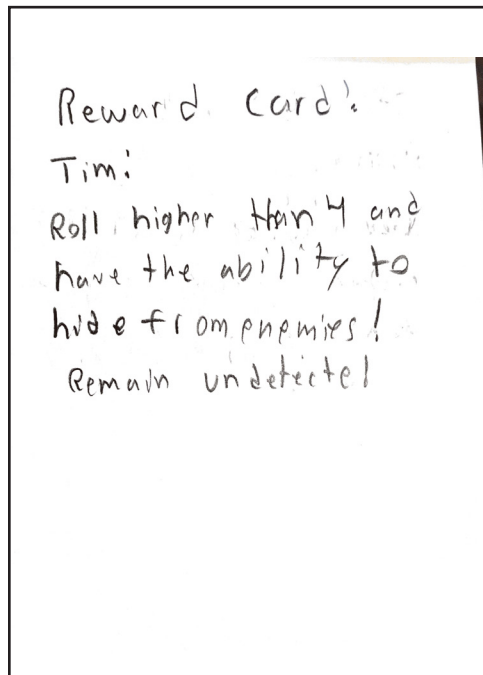 Reward Card!
Tim:
Roll higher than 4 and
have the ability to
hide from enemies!
Remain undetected